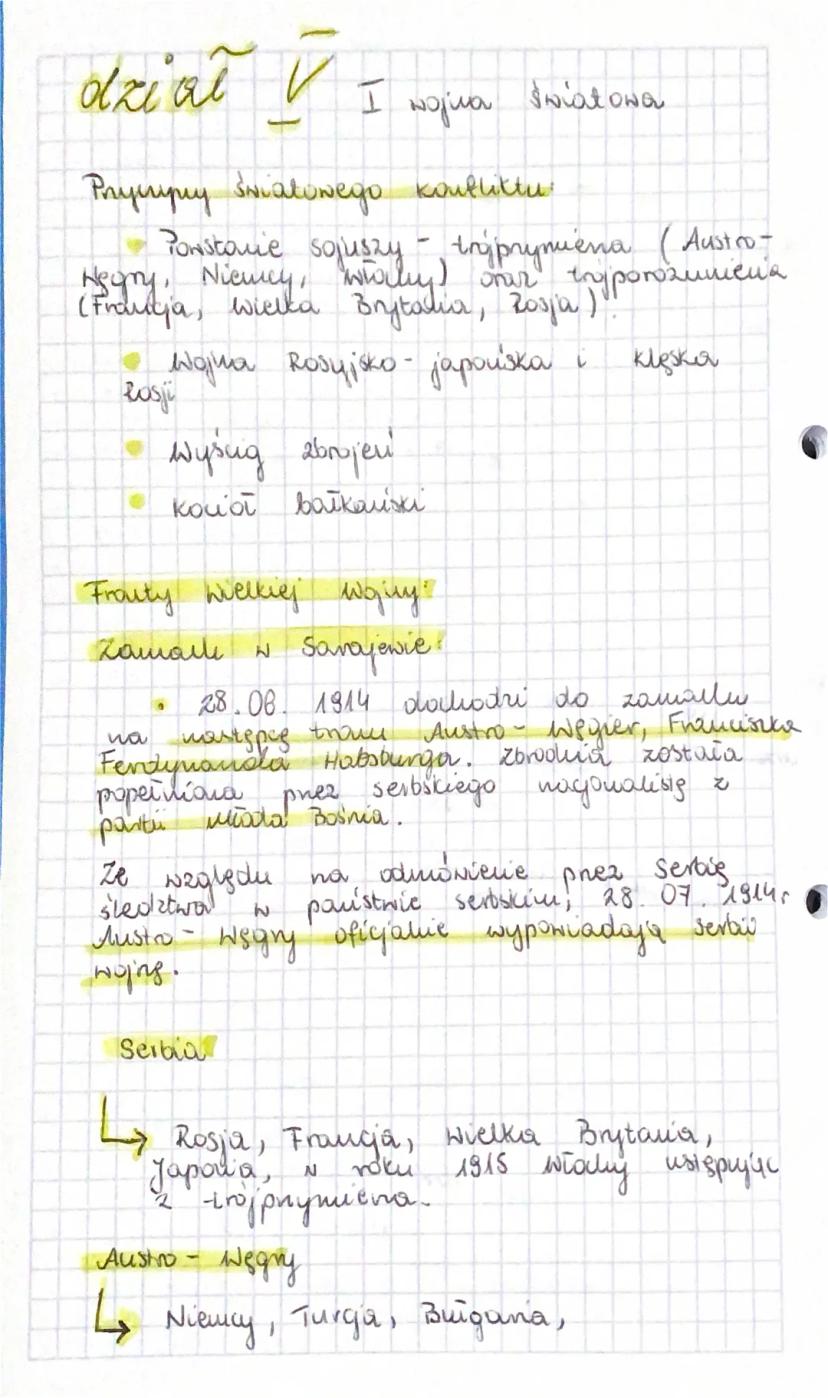 dział V I wojna światowa
Przyczyny światowego konfliktu:
• Powstanie sojuszy - trójprzymierza (Austro-
Węgry, Niemcy, Włochy) oraz trójporozumienia
(Francja, Wielka Brytania, Rosja).
• Wojna Rosyjsko-japońska i klęska
Rosji
• Wyścig zbrojeń
• Kocioł bałkański
Fronty Wielkiej Wojny:
Zamach w Sarajewie:
• 28.06. 1914 dochodzi do zamachu
na następcę tronu Austro-Węgier, Franciszka
Ferdynanda Habsburga. Zbrodnia została
popełniona przez serbskiego nacjonalistę z
partii Młoda Bośnia.
Ze względu na odmówienie przez Serbię
śledztwa w państwie serbskim, 28. 07. 1914r
Austro-Węgry oficjalnie wypowiadają serbii
wojnę.
Serbia
↳ Rosja, Francja, Wielka Brytania,
Japonia, w roku 1915 Włochy ustępując
z trójprzymierza.
Austro-Węgry
↳ Niemcy, Turcja, Bułgaria,